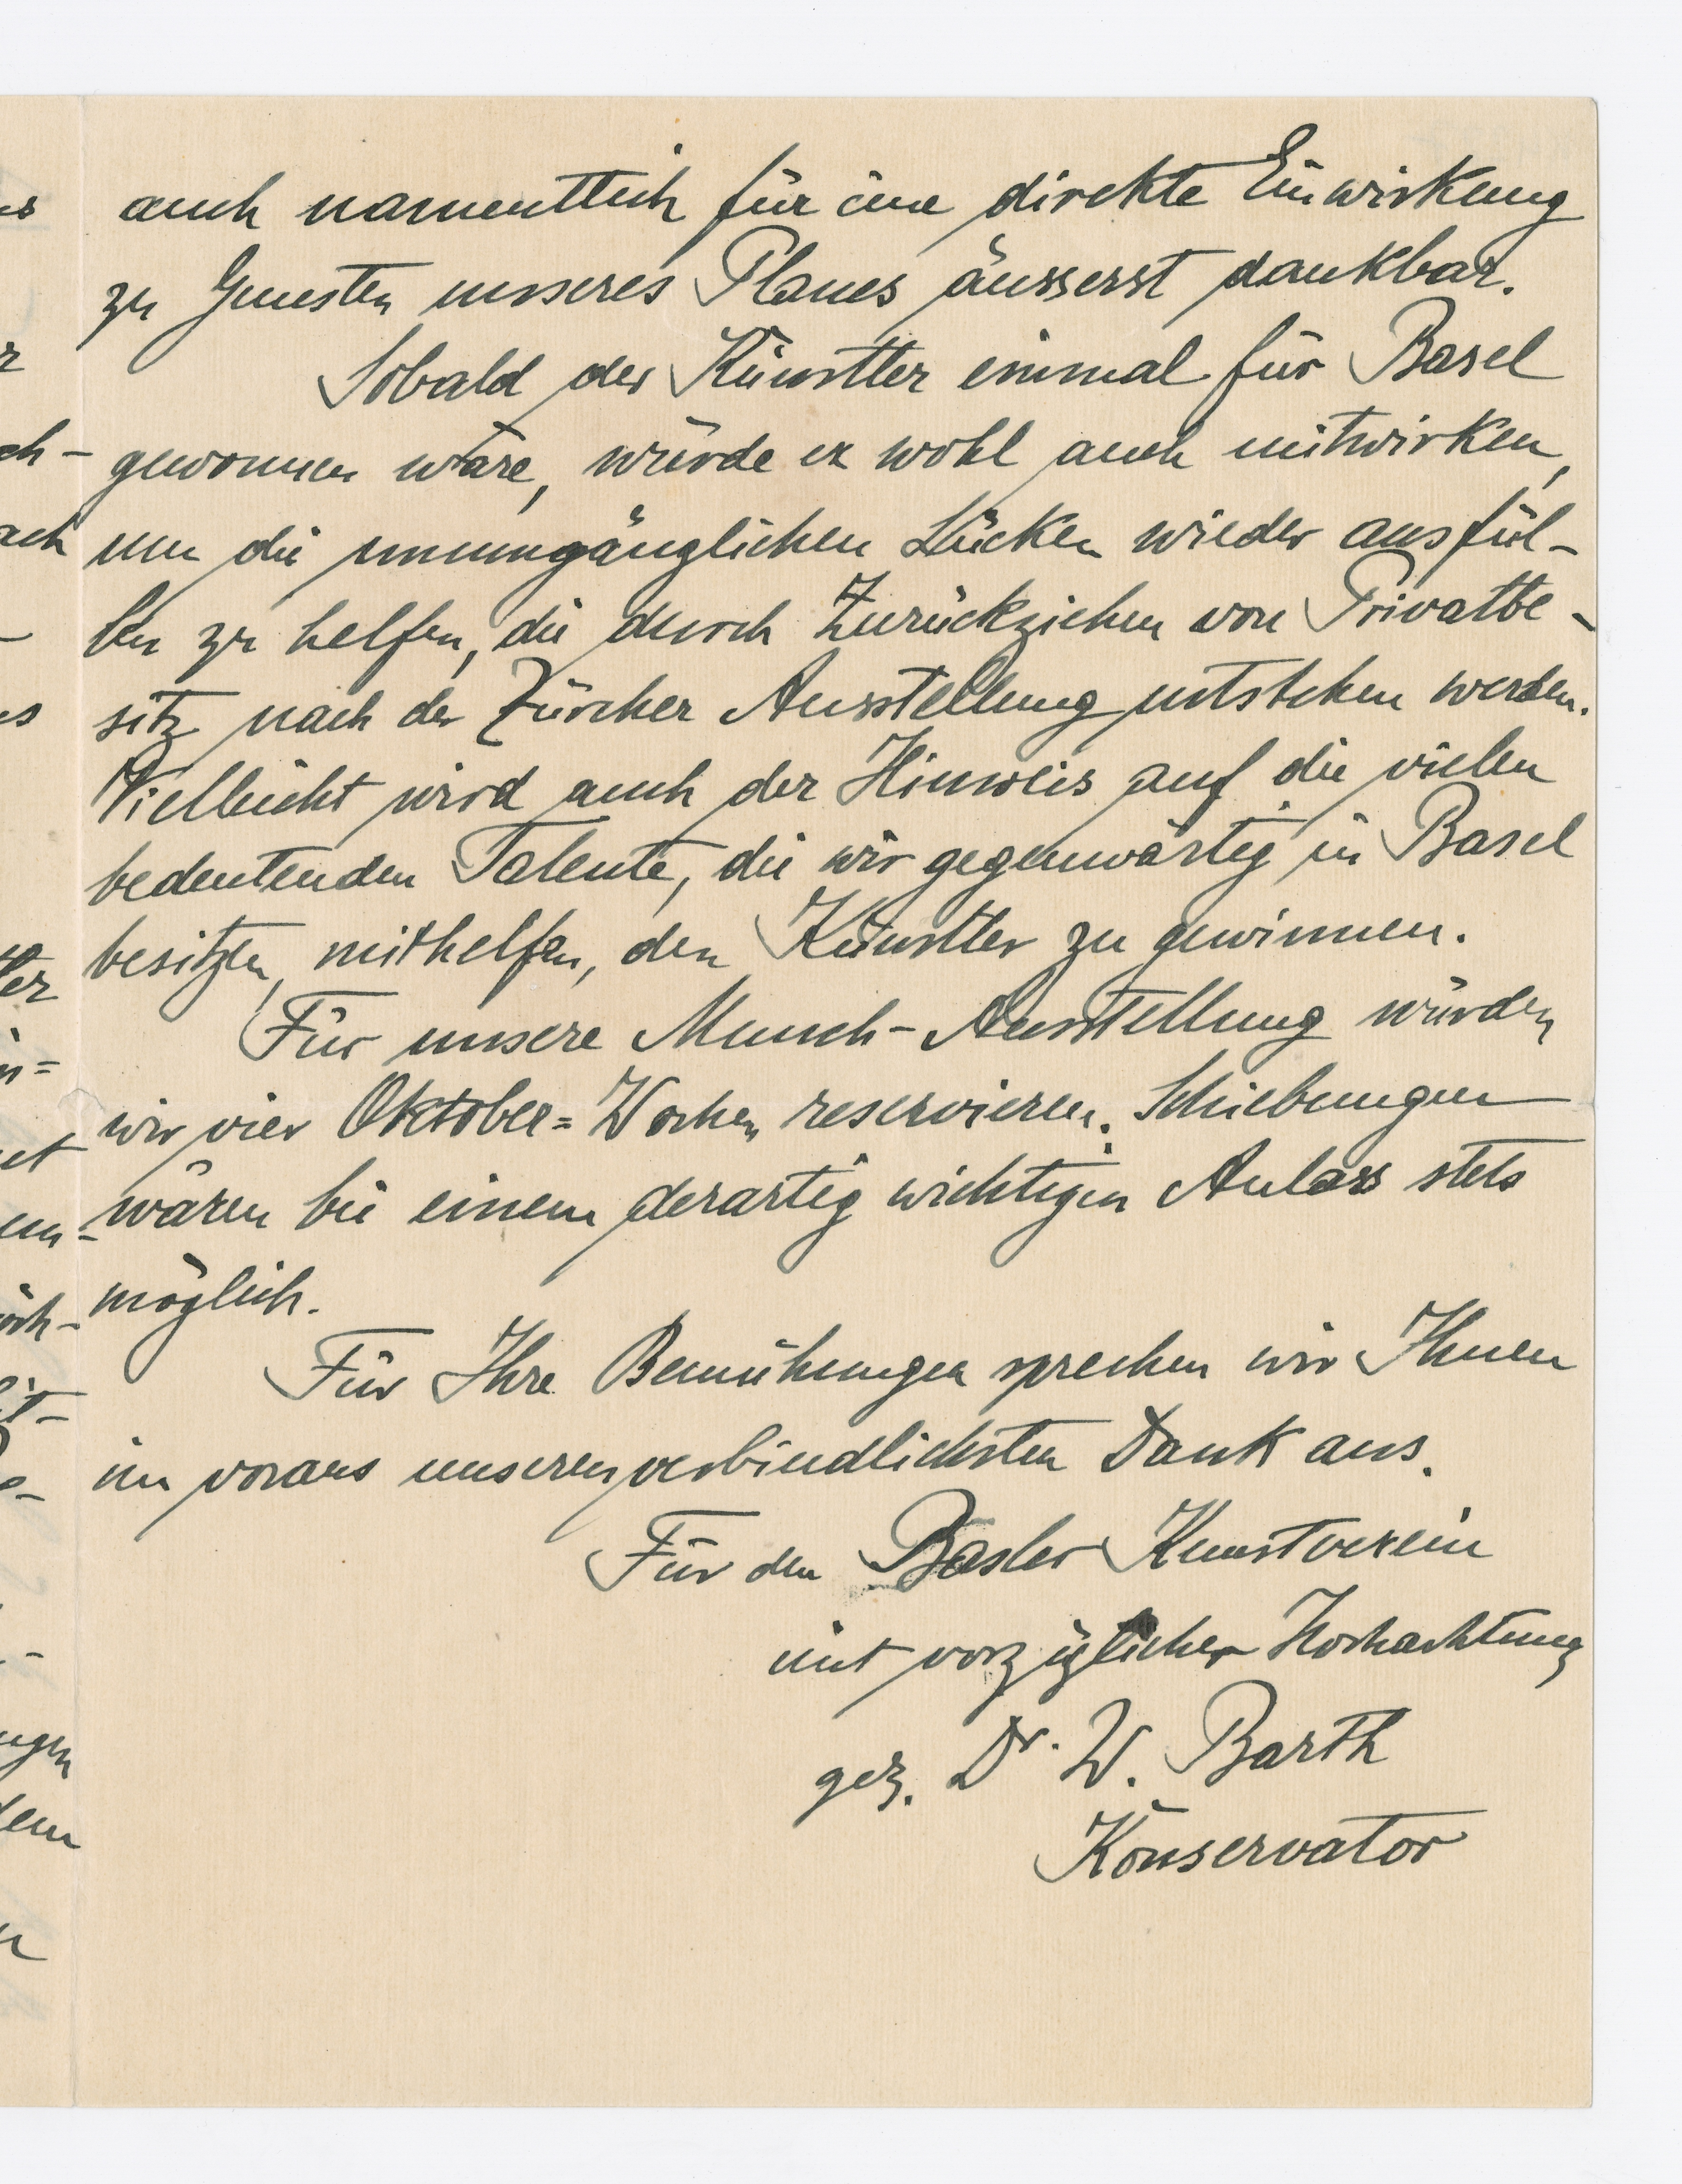 auch namentlich für eine direkte Einwirkung
zu Gunsten unseres Planes äusserst dankbar.
Sobald der Künstler einmal für Basel
gewonnen wäre, würde er wohl auch mitwirken,
um die unumgänglichen Lücken wieder ausfül-
len zu helfen, die durch Zurückziehen von Privatbe-
sitz nach der Zürcher Ausstellung entstehen werden.
Vielleicht wird auch der Hinweis auf die vielen
bedeutenden Talente, die wir gegenwärtig in Basel
besitzen, mithelfen, den Künstler zu gewinnen.
Für unsere Munch-Ausstellung würden
wir vier Oktober=Wochen reservieren. Schiebungen
wären bei einem derartig wichtigen Anlass stets
möglich.
Für Ihre Bemühungen sprechen wir Ihnen
im voraus unseren verbindlichsten Dank aus.
Für den Basler Kunstverein
mit vorzüglicher Hochachtung
gez. Dr. W. Barth
Konservator